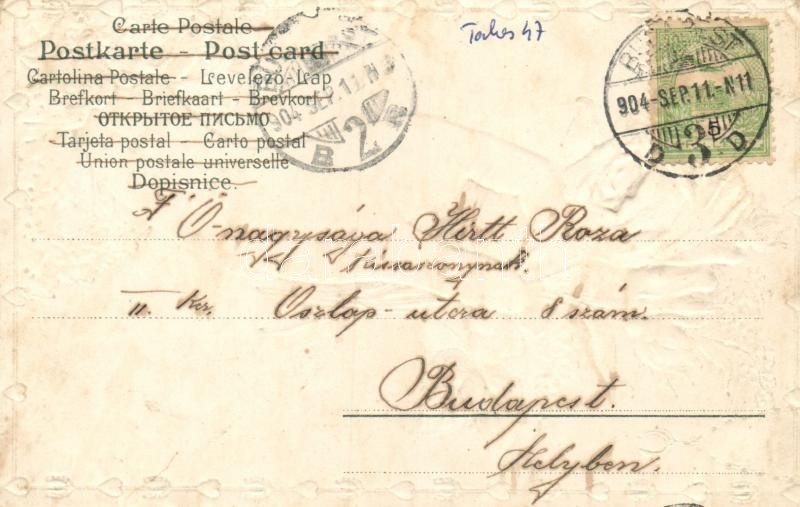 Carte Postale
Postkarte - Post card
Cartolina Postale - Levelező-Lap
Brefkort - Briefkaart - Brevkort
ОТКРЫТОЕ ПИСЬМО
Tarjeta postal - Carto postal
Union postale universelle
Dopisnice.
904-SEP.11.-N
B 2 B
Takes 47
BUDAPEST
904-SEP.11.-N11
D 3 D
Ő-nagysága Hirtt Roza
kisasszonynak.
II. Ker. Oszlap-utcza 8 szám.
Budapest.
Helyben.